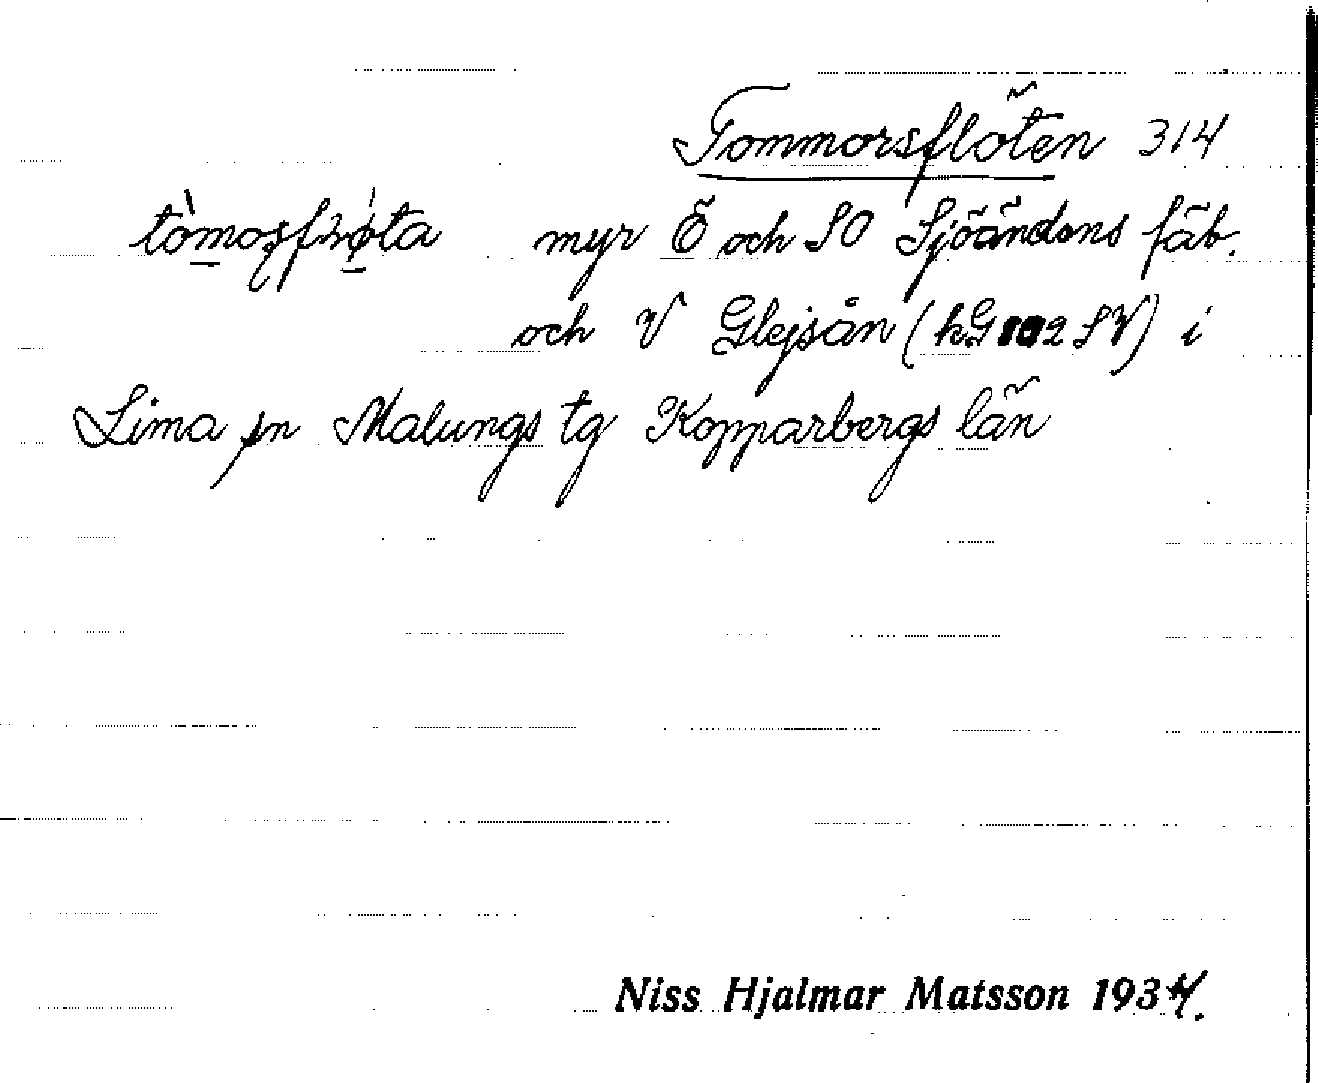 Tommorsflöten 314
myr Ö och SO Sjöändans fäb.
och V Glejsån (kG 2 SV) i
Lima sn Malungs tg Kopparbergs län
Niss Hjalmar Matsson 1934.